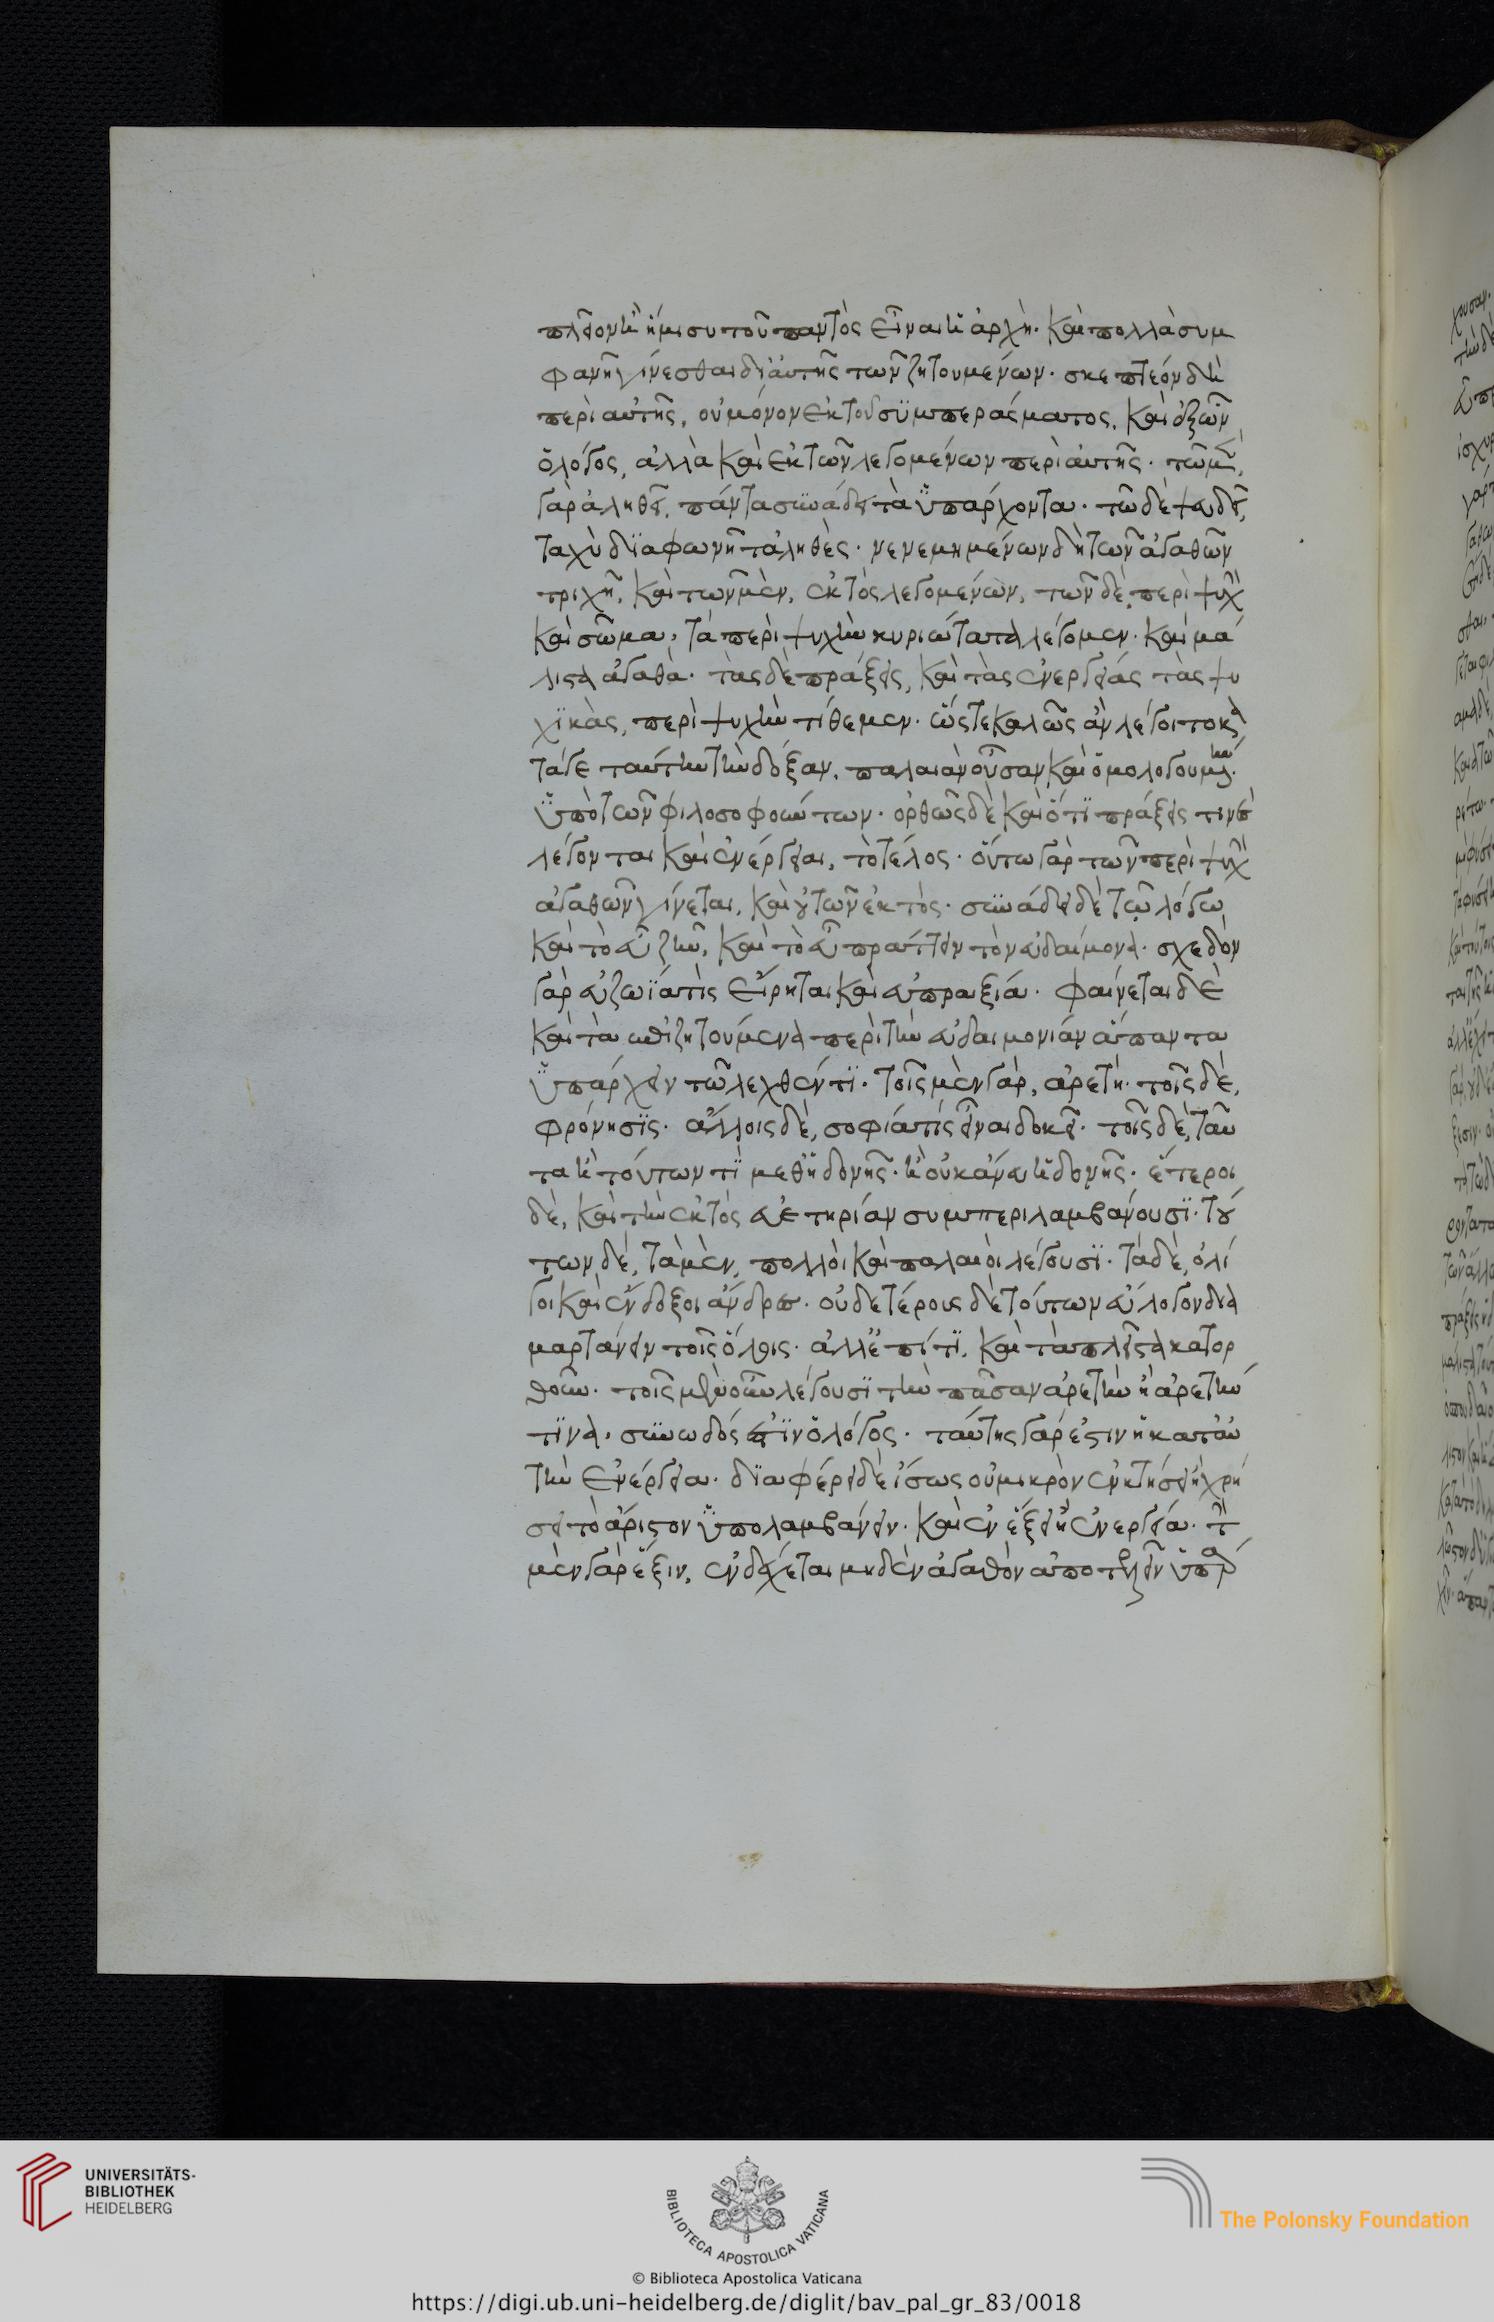 πλεῖον ἢ ἥμισυ τοῦ παντὸς εἶναι ἡ ἀρχή. καὶ πολλὰ συμ
φανῆ γίνεσθαι δι αὐτῆς τῶν ζητουμένων. σκεπτέον δὴ
περὶ αὐτῆς, οὐ μόνον ἐκ τοῦ συμπεράσματος, καὶ ἐξ ὧν
ὁ λόγος, ἀλλὰ καὶ ἐκ τῶν λεγομένων περὶ αὐτῆς. τῶ μὲν
γὰρ ἀληθεῖ, πάντα συνάδει τὰ ὑπάρχοντα. τῶ δὲ ψευδεῖ,
ταχὺ διαφωνῆ τἀληθές. νενεμημένων δὴ τῶν ἀγαθῶν
τριχῆ, καὶ τῶν μὲν, ἐκτὸς λεγομένων, τῶν δὲ, περὶ ψυχὴν
καὶ σῶμα, τὰ περὶ ψυχὴν κυριώτατα λέγομεν. καὶ μά
λιστα ἀγαθά. τὰς δὲ πράξεις, καὶ τὰς ἐνεργείας τὰς ψυ
χικὰς, περὶ ψυχὴν τίθεμεν. ὥστε καλῶς ἂν λέγοιτο κατὰ
τάγε ταύτην τὴν δόξαν, παλαιὰν οὖσαν καὶ ὁμολογουμένην
ὑπὸ τῶν φιλοσοφούντων. ὀρθῶς δὲ καὶ ὅτι πράξεις τινὲς
λέγονται καὶ ἐνέργειαι, τὸ τέλος. οὕτω γὰρ τῶν περὶ ψυχὴν
ἀγαθῶν γίνεται, καὶ οὐ τῶν ἐκτὸς. συνάδει δὲ τῶ λόγω
καὶ τὸ εὖ ζῆν, καὶ τὸ εὖ πράττειν τὸν εὐδαίμονα. σχεδὸν
γὰρ εὐζωΐα τὶς εἴρηται καὶ εὐπραξία. φαίνεται δὲ
καὶ τὰ ἐπιζητούμενα περὶ τὴν εὐδαιμονίαν ἅπαντα
ὑπάρχειν τῶ λεχθέντι. τοῖς μὲν γὰρ, ἀρετὴ. τοῖς δὲ,
φρόνησις. ἄλλοις δὲ, σοφία τίς εἶναι δοκεῖ. τοῖς δὲ, ταῦ
τα ἢ τούτων τὶ μεθ ἡδονῆς. ἢ οὐκ ἄνευ ἡδονῆς. ἕτεροι
δὲ, καὶ τὴν ἐκτὸς εὐετηρίαν συμπεριλαμβάνουσι. τού
των δὲ, τὰ μὲν, πολλοὶ καὶ παλαιοὶ λέγουσι. τὰ δὲ, ὀλί
γοι καὶ ἔνδοξοι ἄνδρες. οὐδετέρους δὲ τούτων εὔλογον δια
μαρτάνειν τοῖς ὅλοις. ἀλλ ἕν γέ τι, καὶ τὰ πλεῖστα κατορ
θοῦν. τοῖς μὲν οὖν λέγουσι τὴν πᾶσαν ἀρετὴν ἢ ἀρετήν
τινα, συνωδός ἐστιν ὁ λόγος. ταύτης γάρ ἐστιν ἡ κατ αὐ
τὴν ἐνέργεια. διαφέρει δὲ ἴσως οὐ μικρὸν ἐν κτήσει ἢ χρή
σει τὸ ἄριστον ὑπολαμβάνειν. καὶ ἐν ἕξει ἢ ἐνεργεία. τὴν
μὲν γὰρ ἕξιν, ἐνδέχεται μηδὲν ἀγαθὸν ἀποτελεῖν ὑπάρ
UNIVERSITÄTS-
BIBLIOTHEK
HEIDELBERG
BIBLIOTECA APOSTOLICA VATICANA
The Polonsky Foundation
© Biblioteca Apostolica Vaticana
https://digi.ub.uni-heidelberg.de/diglit/bav_pal_gr_83/0018